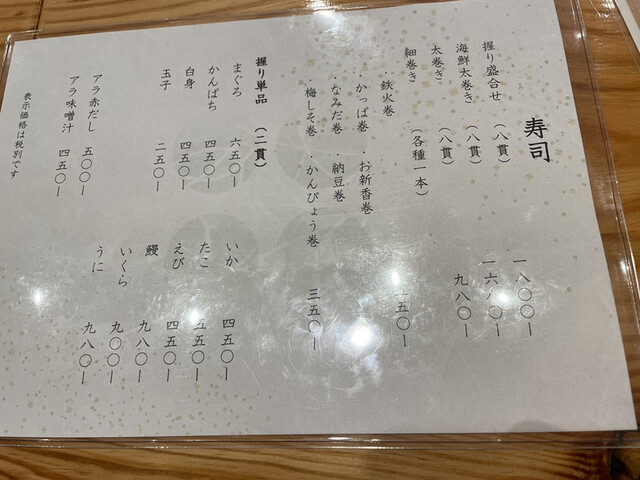 寿司
握り盛合せ（八貫） 一八〇〇ー
海鮮太巻き（八貫） 一六八〇ー
太巻き（八貫） 九八〇ー
細巻き（各種一本）
・鉄火巻 五〇ー
・かっぱ巻 ・お新香巻
・なみだ巻 ・納豆巻
・梅しそ巻 ・かんぴょう巻 三五〇ー
握り単品（二貫）
まぐろ 六五〇ー いか 四五〇ー
かんぱち 四五〇ー たこ 五五〇ー
白身 四五〇ー えび 四五〇ー
玉子 二五〇ー 鰻 九八〇ー
いくら 九〇〇ー
うに 九八〇ー
アラ赤だし 五〇〇ー
アラ味噌汁 四五〇ー
表示価格は税別です